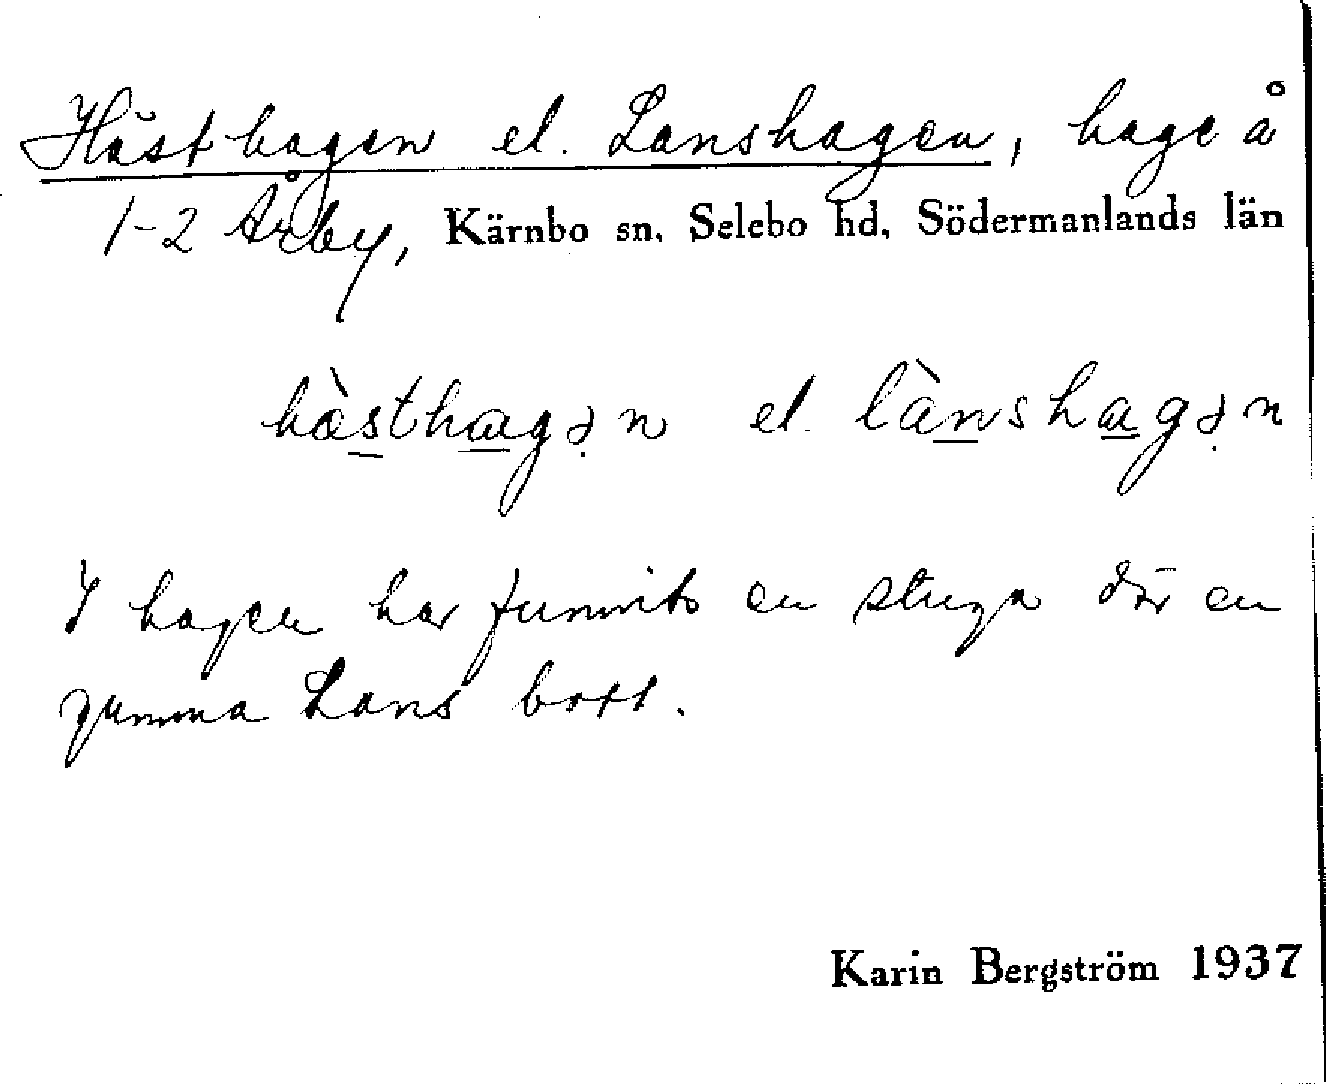 Hästhagen el. Lanshagen, hage å
1-2 Årby, Kärnbo sn, Selebo hd, Södermanlands län
hæ̀sthagən el. lànshagən
I hagen har funnits en stuga där en
gumma Lans bott.
Karin Bergström 1937